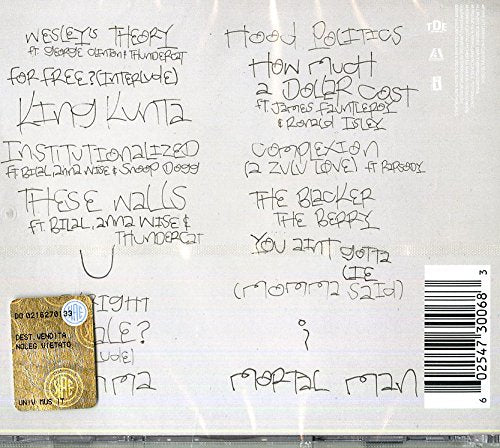 WESLEY'S THEORY
FT GEORGE CLINTON & THUNDERCAT
FOR FREE? (INTERLUDE)
KING KUNTA
INSTITUTIONALIZED
FT BILAL, ANNA WISE & SNOOP DOGG
THESE WALLS
FT BILAL, ANNA WISE &
THUNDERCAT
U
RIGHT
ALE?
UDE)
MMA
HOOD POLITICS
HOW MUCH
A DOLLAR COST
FT JAMES FAUNTLEROY
& RONALD ISLEY
COMPLEXION
(A ZULU LOVE) FT RAPSODY
THE BLACKER
THE BERRY
YOU AINT GOTTA
LIE
(MOMMA SAID)
i
MORTAL MAN
TDE
DO 0216270133
SIAE
DEST. VENDITA
NOLEG. VIETATO
UNIV MUS IT
6 02547 30068 3